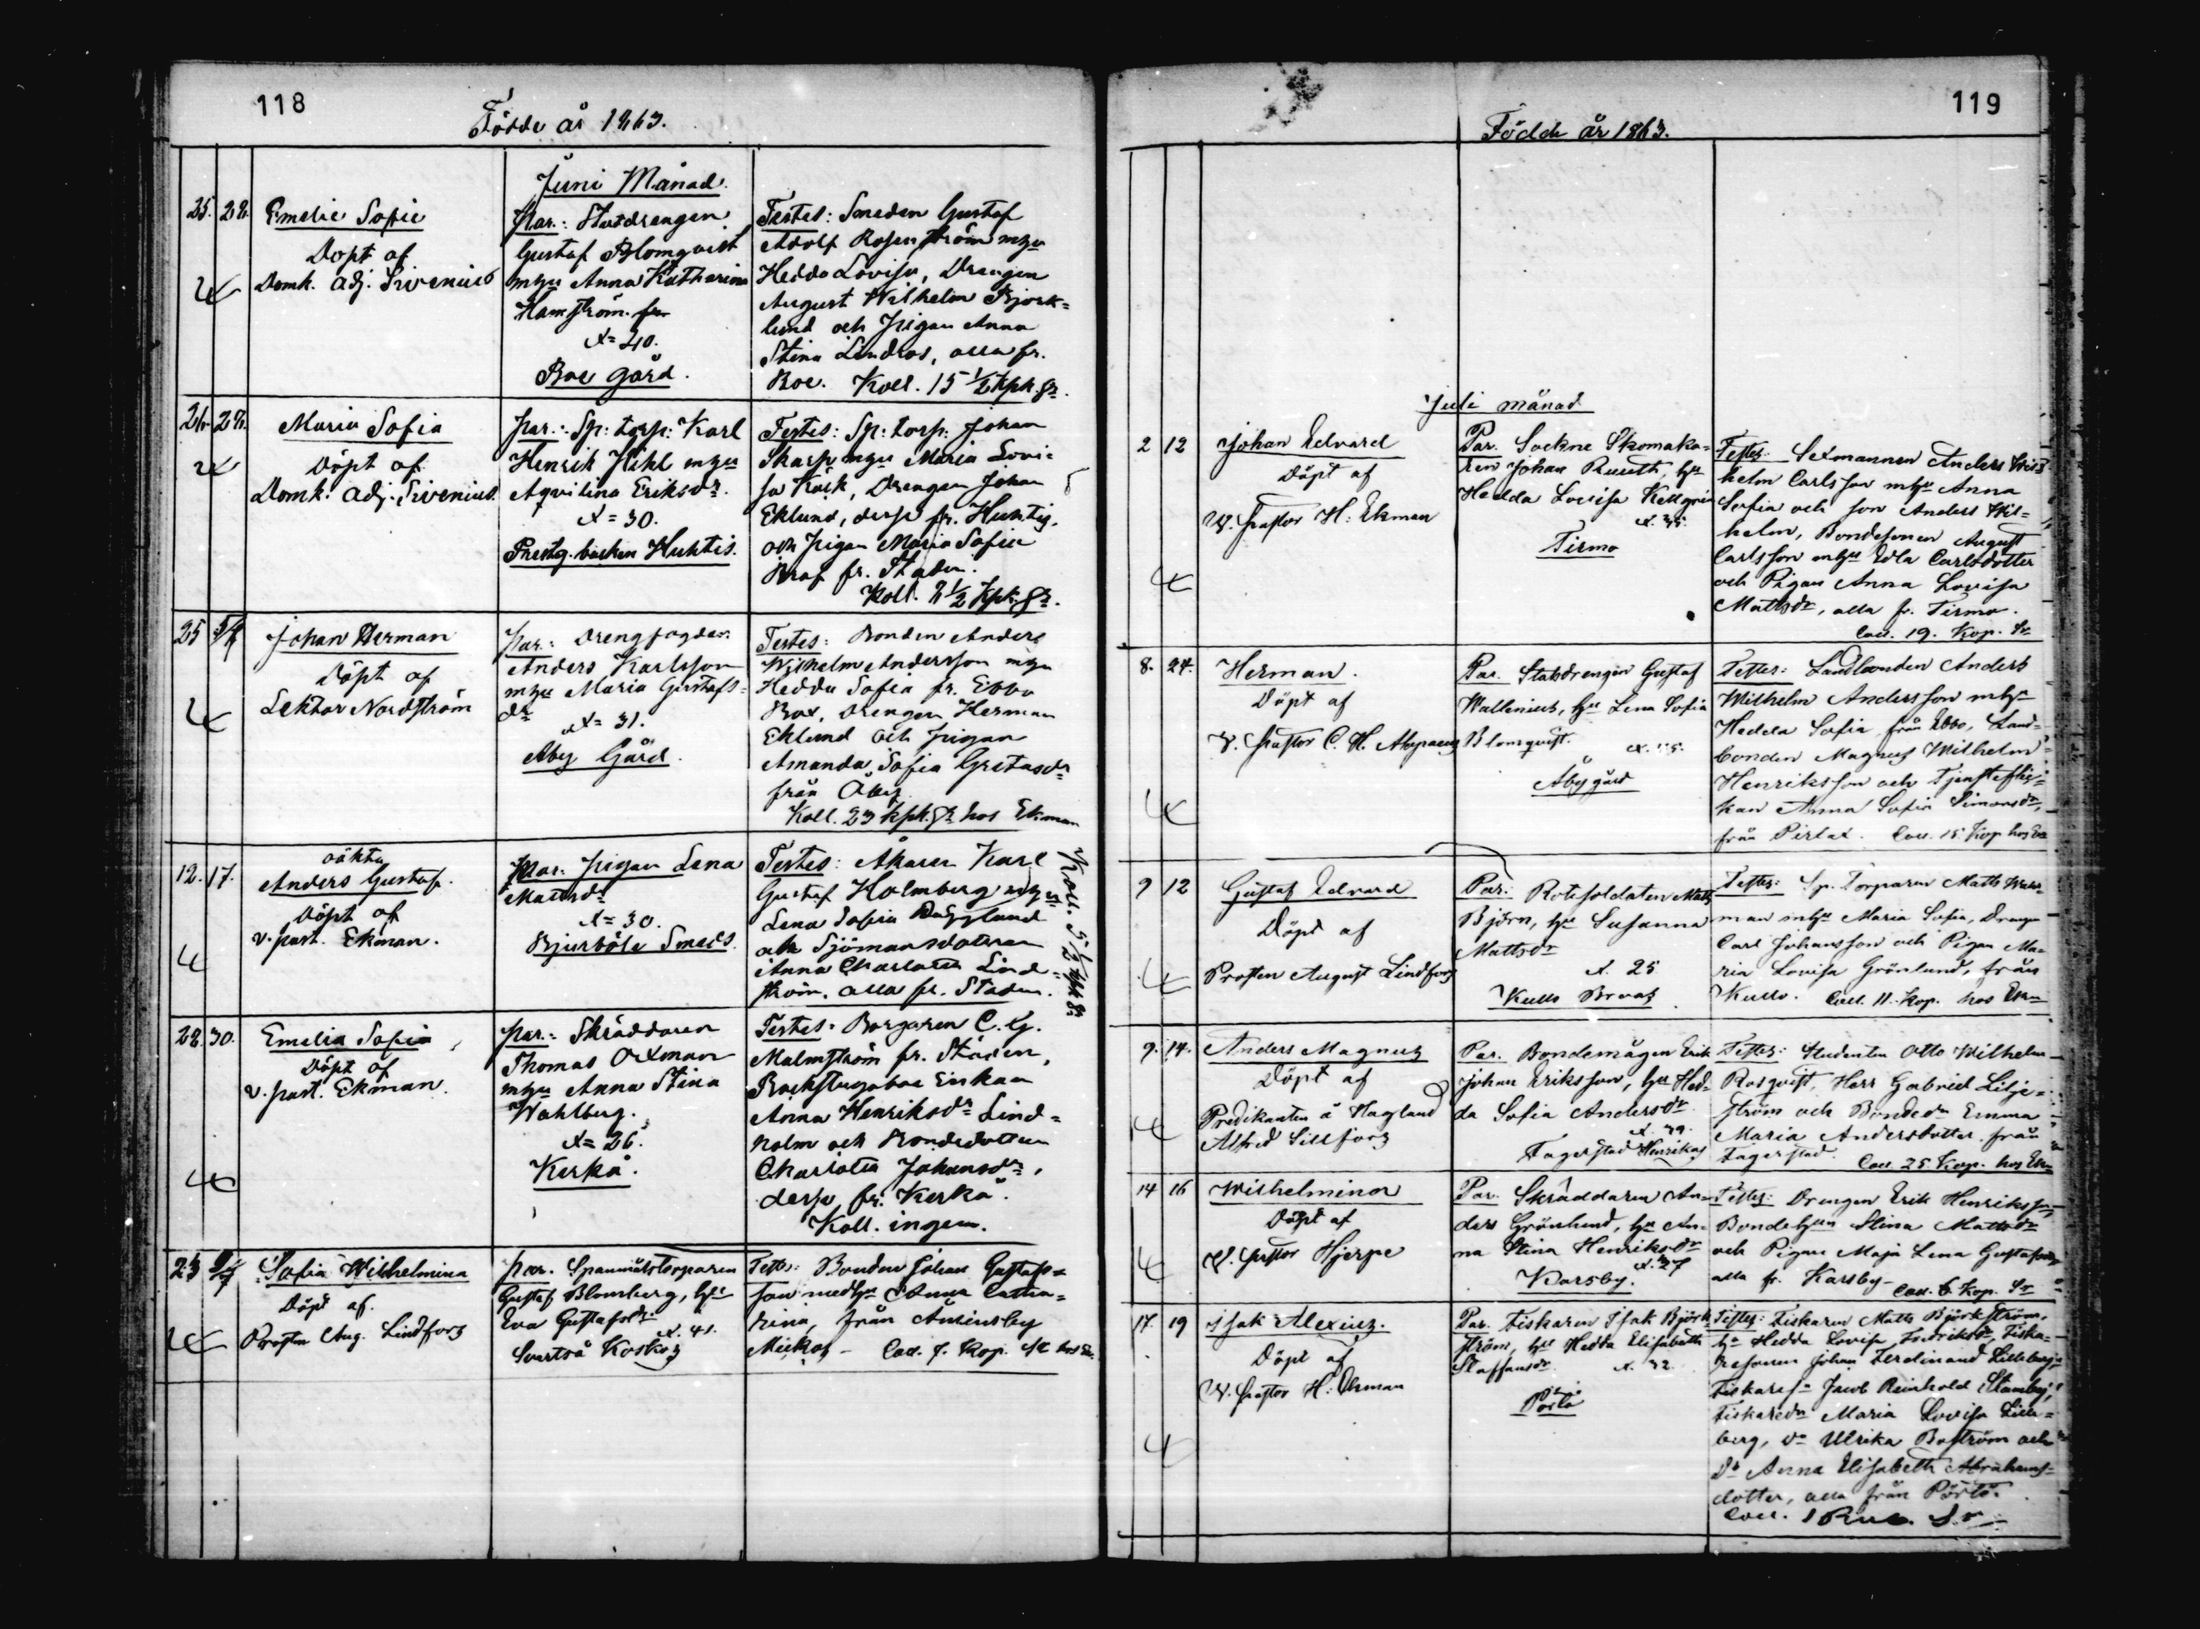 118
Födde år 1863.
Juni Månad.
25. 28. Emelie Sofie
Döpt af
Domk. adj. Sirenius
Par.: Statdrengen
Gustaf Blomqvist
mhu Anna Katharina
Hamström. fr.
x= 40.
Boe gård.
Testes: Smeden Gustaf
Adolf Rosenström mhu
Hedda Lovisa, Drengen
August Wilhelm Björk=
lund och Pigan Anna
Stina Lindros, alla fr.
Boe. Koll. 15 1/2 kpk. Sr.
26. 28. Maria Sofia
Döpt af
Domk. adj. Sirenius.
Par.: Sp: torp: Karl
Henrik Kihl mhu
Aqvilina Eriksdr.
x= 30.
Prestg. backen Huktis.
Testes: Sp: torp: Johan
Skarp mhu Maria Lovi=
sa Kock, Drengen Johan
Eklund, desse fr. Huktis,
och Pigan Maria Sofia
fr. Staden.
Koll. 8 1/2 Kpk. Sr.
25 Johan Herman
Döpt af
Lektor Nordström
Par.: Drengfogden
Anders Karlsson
mhu Maria Gustafs=
dr
x= 31.
Åby Gård.
Testes: Bonden Anders
Wilhelm Andersson mhu
Hedda Sofia fr. Ebbo
Box, Drengen Herman
Eklund och Pigan
Amanda Sofia Gretasdr
från Åby.
Koll. 23 kpk. Sr hos Ekman
oäkta
12. 17. Anders Gustaf.
Döpt af
v. past. Ekman.
Mar. Pigan Lena
Matsdr
x= 30.
Bjurböle Smeds.
Testes: Åkaren Karl
Gustaf Holmberg mhu
Lena Sofia Hägglund
och Sjömansdottren
Anna Charlotta Lind=
ström. alla fr. Staden.
Koll. 5 1/2 kpk Sr.
28. 30. Emelia Sofia
Döpt af
v. past. Ekman.
Par.: Skräddaren
Thomas Oxman
mhu Anna Stina
Wahlberg.
x= 26.
Kerko.
Testes: Borgaren C. G.
Malmström fr. Staden,
Backstugaboe Enkan
Anna Henriksdr Lind=
holm och Bondedottren
Charlotta Johansdr,
desse fr. Kerko.
Koll. ingen.
23 Sofia Wilhelmina
Döpt af.
Prosten Aug. Lindfors
Par. Spannmålstorparen
Gustaf Blomberg, hu
Eva Gustafsdr
x. 41.
Svartså Koskas
Testes: Bonden Johan Gustafs=
son med hu Anna Catha=
rina, från Åminsby
Mickos – Coll. 9. Kop. Sr
119
Födde år 1863.
Juli månad
2 12 Johan Edvard
Döpt af
V. Pastor H: Ekman
Par. Sockne Skomaka=
ren Johan Ruuth, hu
Hedda Lovisa Kellgrén
x. 35.
Tirmo
Testes: Sexmannen Anders Wil=
helm Carlsson mhu Anna
Sofia och son Anders Wil=
helm, Bondesonen August
Carlsson mhu Edla Carlsdotter
och Pigan Anna Lovisa
Mattsdr, alla fr. Tirmo.
Coll. 19. Kop. Sr
8. 24. Herman.
Döpt af
V. Pastor C. H. Alopaeus
Par. Statsdrengen Gustaf
Wallenius, hu Lena Sofia
Blomqvist.
Åby gård
Testes: Landbonden Anders
Wilhelm Andersson mhu
Hedda Sofia från Ebbo, Land=
bonden Magnus Wilhelm
Henriksson och Tjensteflic=
kan Anna Sofia Simonsdr,
från Pirlax. Coll. 15 Kop hos Ek
9 12 Gustaf Edvard
Döpt af
Prosten August Lindfors
Par: Rotesoldaten Matts
Björn, hu Susanna
Mattsdr
x. 25
Kullo Broas
Testes: Sp. Torparen Matts
man mhu Maria Sofia, Drengen
Carl Johansson och Pigan Ma=
ria Lovisa Grönlund, från
Kullo. Coll. 11. Kop. hos Ek
9. 14. Anders Magnus
Döpt af
Predikanten å Haglund
Alfred Lillfors
Par. Bondemågen Erik
Johan Eriksson, hu Hed=
da Sofia Andersdr
x. 39.
Fagerstad Henrikas
Testes: Studenten Otto Wilhelm
Rosqvist, Herr Gabriel Lilje=
ström och Bondedr Emma
Maria Andersdotter från
Fagerstad. Coll. 25 Kop. hos Ek
14 16 Wilhelmina
Döpt af
V. Pastor Hjerpe
Par. Skräddaren An=
ders Grönlund, hu An=
na Stina Henriksdr
x. 27
Karsby.
Testes: Drengen Erik Henriksson,
Bondehun Stina Mattsdr
och Pigan Maja Lena Gustafsdr
alla fr. Karsby – Coll. 6 Kop. Sr
17. 19 Isak Alexius.
Döpt af
V. Pastor H: Ekman
Par. Fiskaren Isak Björk=
ström, hu Hedda Elisabeth
Staffansdr x. 32
Pörtö
Testes: Fiskaren Matts Björkström,
hu Hedda Lovisa Fredriksdr, Fiska=
resonen Johan Ferdinand Lilleberg,
Fiskares Jacob Reinhold Stamberg,
Fiskaredr Maria Lovisa Lille=
berg, Do Ulrika Boström och
Do Anna Elisabeth Abrahams=
dotter, alla från Pörtö.
Coll. 1 Rub. Sr